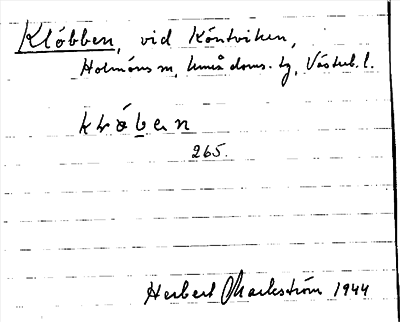 Klöbben, vid Köntviken,
Holmöns sn, Umeå doms. tg, Västerb. l.
klöben
265.
Herbert Markström 1944